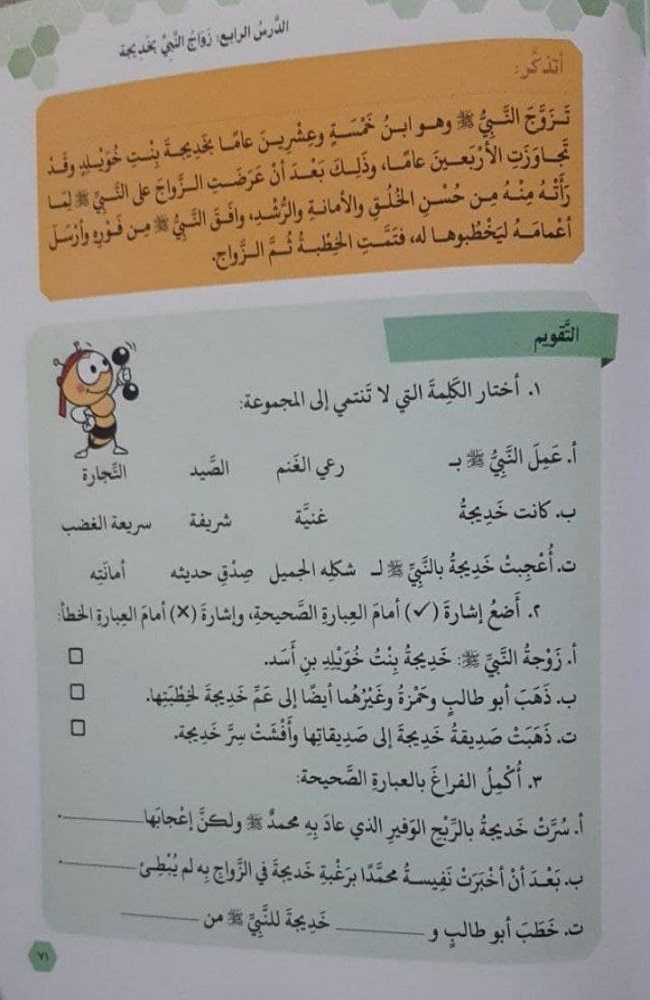 الدَّرسُ الرابع: زَوَاجُ النَّبِيِّ بخَدِيجة
أتذكَّر:
تَزَوَّجَ النَّبيُّ ﷺ وهو ابنُ خَمْسَةٍ وعِشْرِينَ عامًا بخَدِيجةَ بِنْتِ خُوَيْلِدٍ وقَدْ
تَجاوَزَتِ الأَرْبَعينَ عامًا، وذَلِكَ بَعْدَ أنْ عَرَضَتِ الزَّواجَ على النَّبيِّ ﷺ لِمَا
رَأَتْهُ مِنْهُ مِن حُسْنِ الخُلُقِ والأمانةِ والرُّشْدِ، وافَقَ النَّبيُّ ﷺ مِن فَوْرِهِ وأرْسَلَ
أعْمامَهُ ليَخْطُبوها له، فتَمَّتِ الخِطْبةُ ثُمَّ الزَّواج.
التَّقويم
١. أختار الكَلِمةَ التي لا تَنتمي إلى المجموعة:
أ. عَمِلَ النَّبيُّ ﷺ بـ رعي الغَنم الصَّيد التِّجارة
ب. كانت خَدِيجةُ غنيَّة شريفة سريعة الغضب
ت. أُعْجِبتْ خَدِيجةُ بالنَّبيِّ ﷺ لـ شكلِه الجميل صِدْقِ حديثه أمانَتِه
٢. أَضعُ إشارةَ (✓) أمامَ العِبارةِ الصَّحيحةِ، وإشارةَ (✗) أمامَ العِبارةِ الخطأ:
أ. زَوْجةُ النَّبيِّ ﷺ: خَدِيجةُ بِنْتُ خُوَيْلِدِ بنِ أَسَد.
ب. ذَهَبَ أبو طالبٍ وحَمْزةُ وغَيْرُهُما أيضًا إلى عَمِّ خَدِيجةَ لخِطْبَتِها.
ت. ذَهَبَتْ صَدِيقةُ خَدِيجةَ إلى صَدِيقاتِها وأَفْشَتْ سِرَّ خَدِيجة.
٣. أُكْمِلُ الفراغَ بالعبارةِ الصَّحيحة:
أ. سُرَّتْ خَديجةُ بالرِّبْحِ الوَفيرِ الذي عادَ بِهِ محمدٌ ﷺ ولكنَّ إعْجابَها ________.
ب. بَعْدَ أنْ أخْبَرَتْ نَفِيسةُ محمَّدًا برَغْبةِ خَديجةَ في الزَّواجِ بِه لم يُبْطِئْ ________.
ت. خَطَبَ أبو طالبٍ و ________ خَدِيجةَ للنَّبيِّ ﷺ من ________
٧١